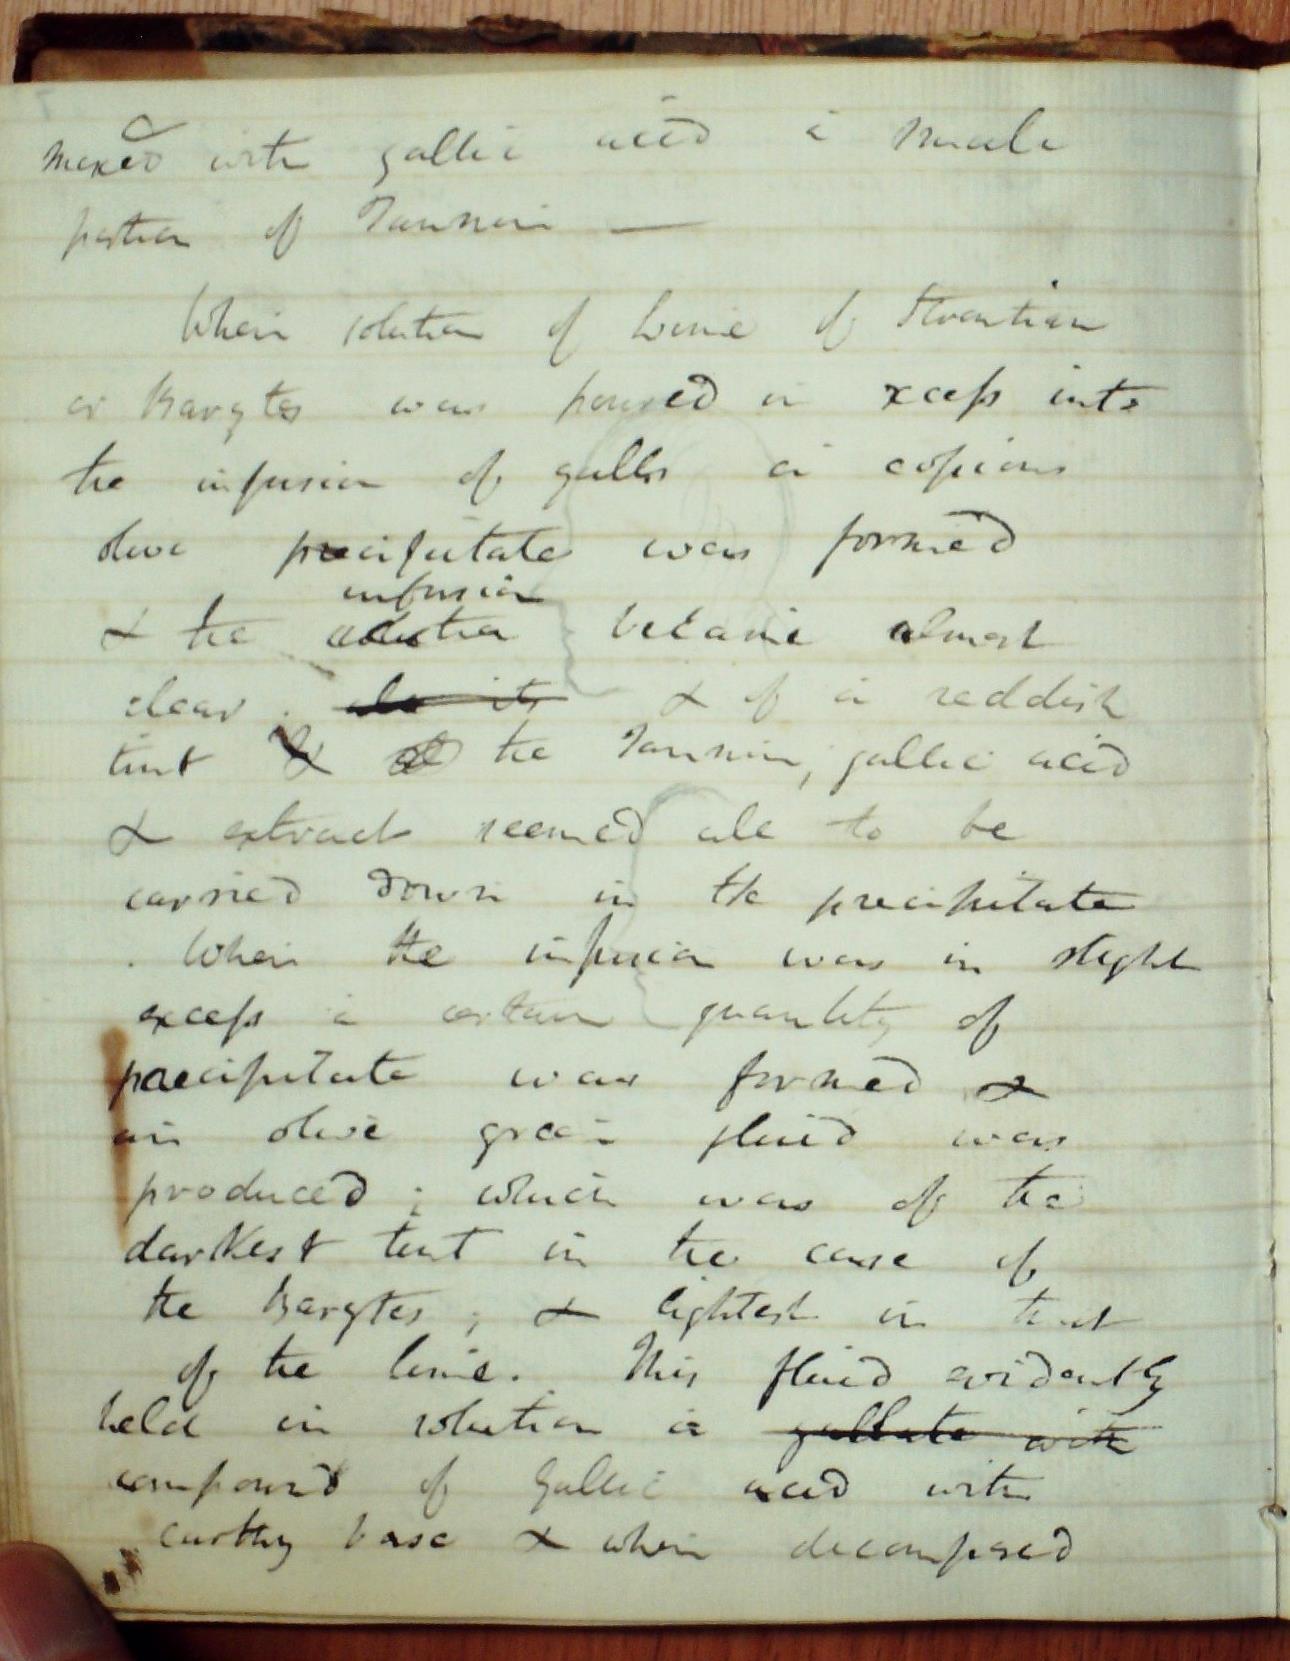 mixed with gallic acid a small
portion of Tannin —
When solution of Lime of Strontian
or Barytes was poured in excess into
the infusion of galls a copious
olive precipitate was formed
infusion
& the solution became almost
clear. & of a reddish
tint & the Tannin, gallic acid
& extract seemed all to be
carried down in the precipitate
. When the infusion was in slight
excess a certain quantity of
precipitate was formed &
an olive green fluid was
produced; which was of the
darkest tint in the case of
the Barytes; & lightest in that
of the lime. This fluid evidently
held in solution a gallate with
compound of Gallic acid with
earthy base & when decomposed